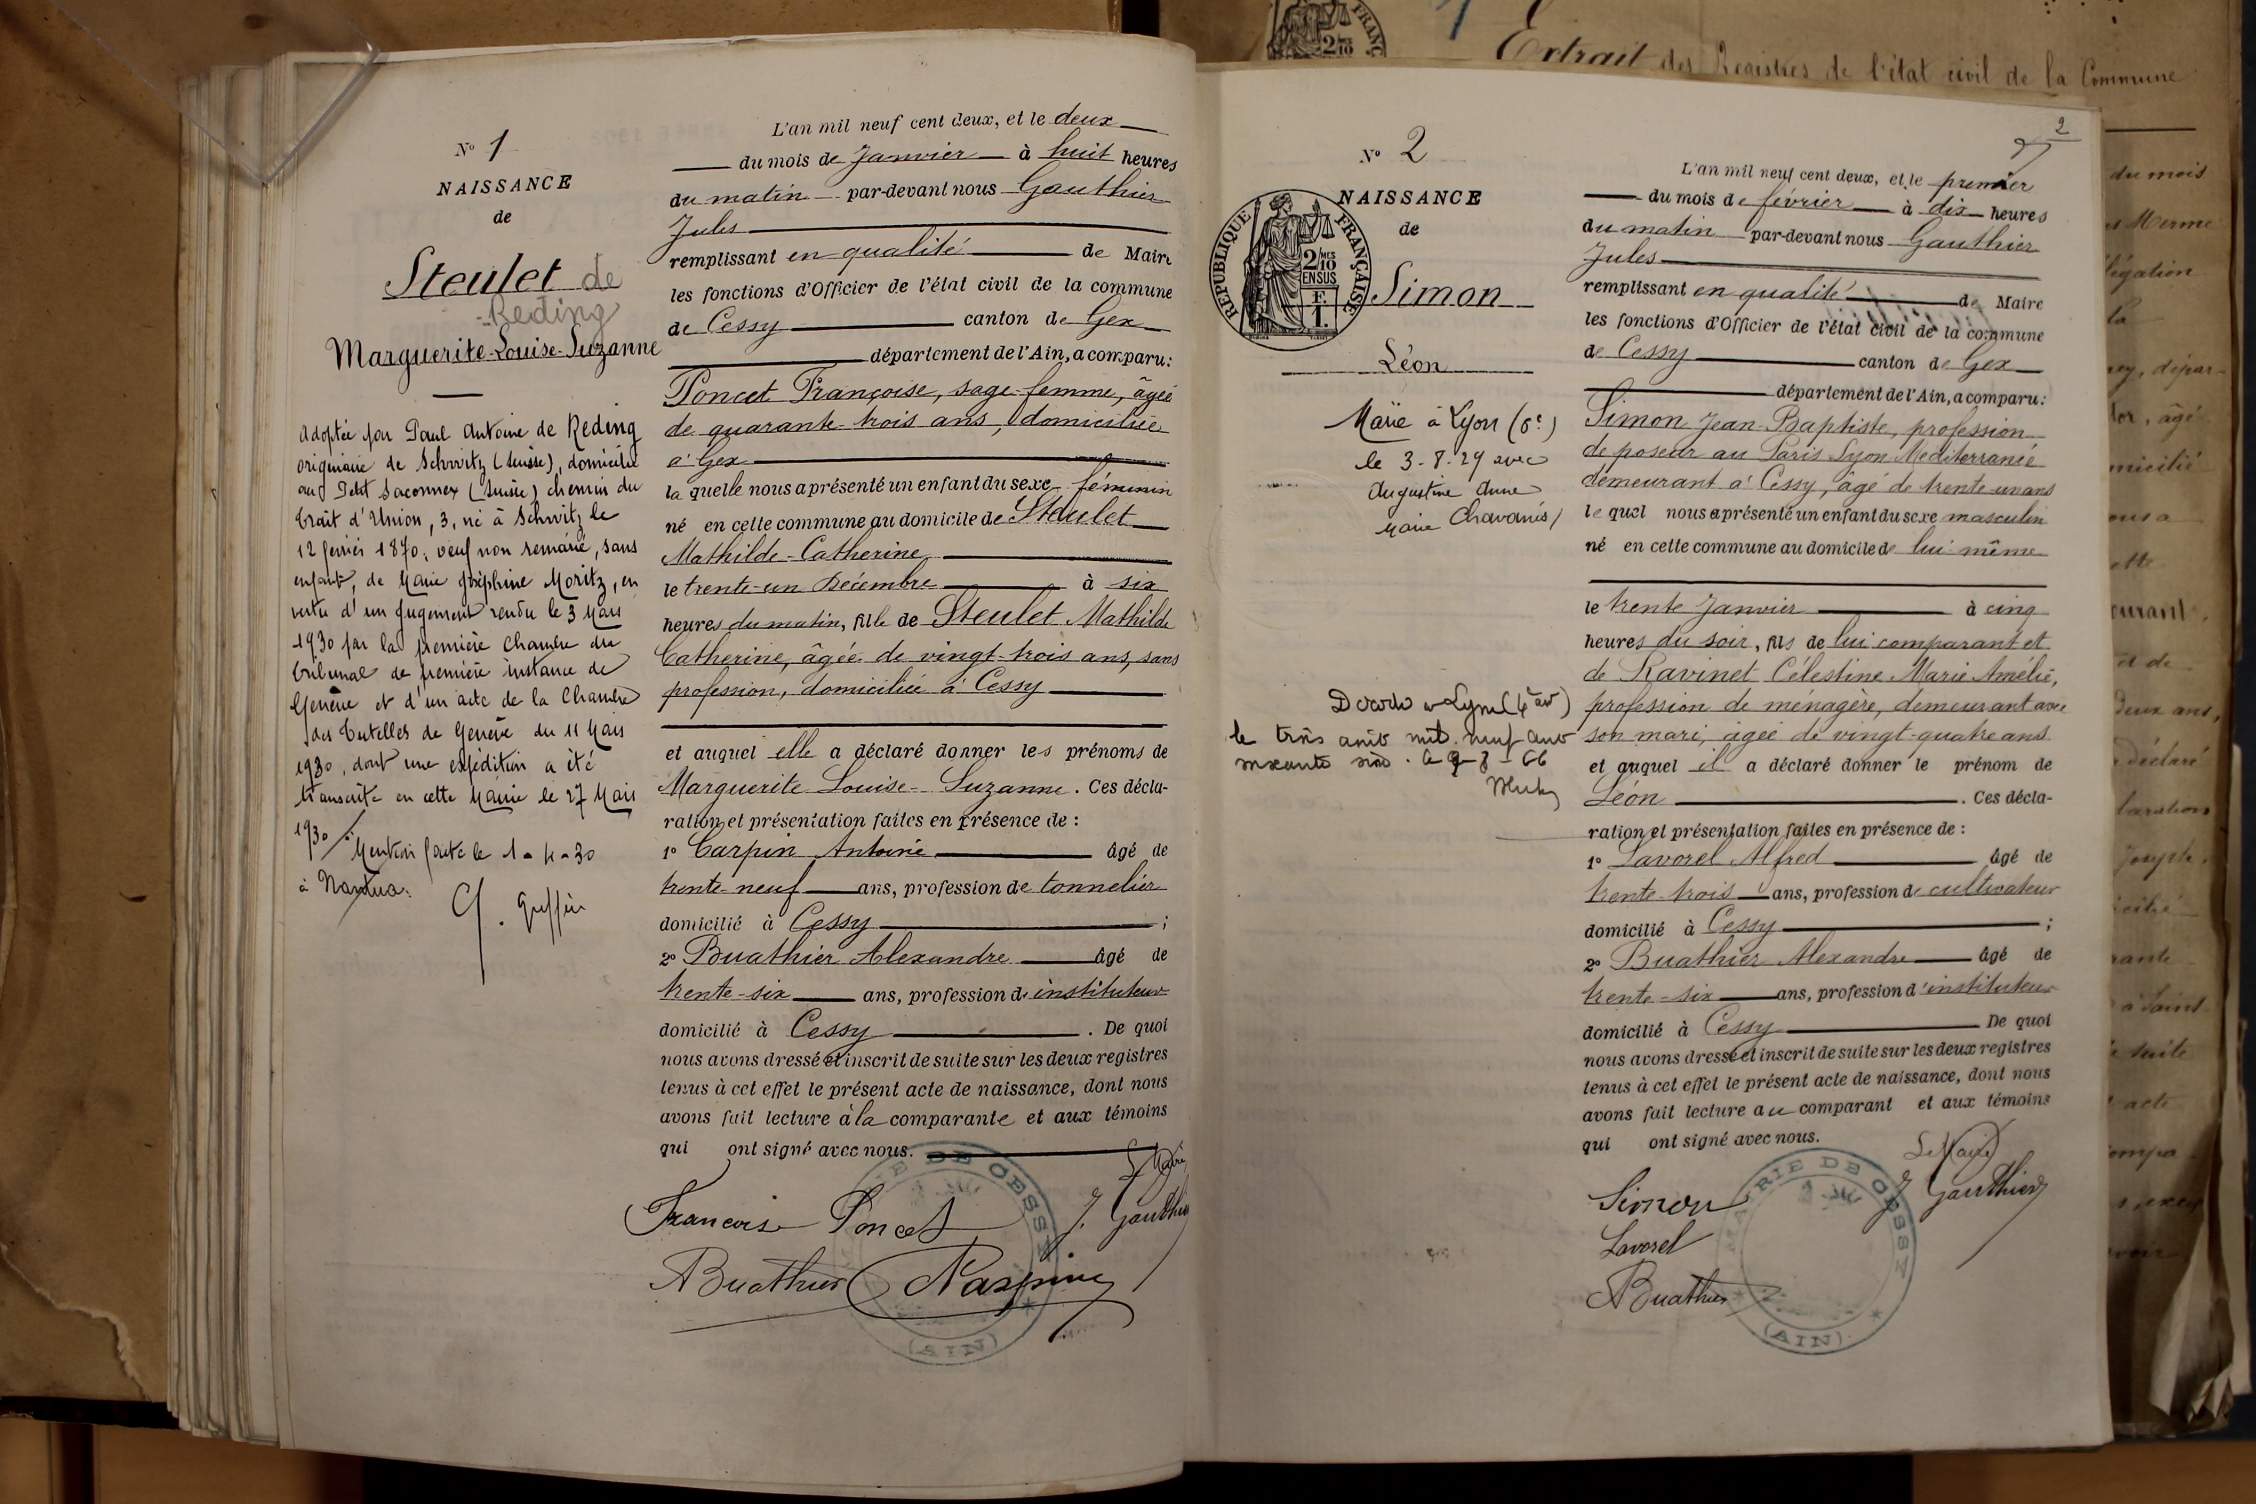 N° 1
NAISSANCE
de
Steulet de
Reding
Marguerite-Louise-Suzanne
Adoptée par Paul Antoine de Reding
originaire de Schwitz (Suisse), domicilié
au Petit Saconnex (Suisse) chemin du
Trait d'Union, 3, né à Schwitz le
12 1870, veuf non remarié, sans
enfant, de Marie Joséphine Moritz, en
vertu d'un jugement rendu le 3 Mars
1930 par la première Chambre du
Tribunal de première instance de
Genève et d'un acte de la Chambre
des Tutelles de Genève du 11 Mars
1930, dont une expédition a été
transcrite en cette Mairie le 27 Mars
1930 /. Mention faite le 1-4-30
à Nantua.
L'an mil neuf cent deux, et le deux
du mois de Janvier à huit heures
du matin par-devant nous Gauthier
Jules
remplissant en qualité de Maire
les fonctions d'Officier de l'état civil de la commune
de Cessy canton de Gex
département de l'Ain, a comparu:
Poncet Françoise, sage-femme, âgée
de quarante-trois ans, domiciliée
à Gex
la quelle nous a présenté un enfant du sexe féminin
né en cette commune au domicile de Steulet
Mathilde-Catherine
le trente-un Décembre à six
heures du matin, fille de Steulet Mathilde
Catherine, âgée de vingt-trois ans, sans
profession, domiciliée à Cessy
et auquel elle a déclaré donner les prénoms de
Marguerite-Louise-Suzanne. Ces décla-
ration et présentation faites en présence de :
1° Carpin Antoine âgé de
trente-neuf ans, profession de tonnelier
domicilié à Cessy ;
2° Buathier Alexandre âgé de
trente-six ans, profession d'instituteur
domicilié à Cessy . De quoi
nous avons dressé et inscrit de suite sur les deux registres
tenus à cet effet le présent acte de naissance, dont nous
avons fait lecture à la comparante et aux témoins
qui ont signé avec nous.
Le Maire
Francoise Poncet J. Gauthier
ABuathier
MAIRIE DE CESSY
(AIN)
Extrait des Registres de l'état civil de la Commune
2
N° 2
NAISSANCE
de
RÉPUBLIQUE FRANÇAISE
2/10 MES
EN SUS
F.
1.
Simon
Léon
Marié à Lyon (6e)
le 3-8-29 avec
Augustine Anne
Marie Chavanis /
Décédé à Lyon (4e arr)
le trois août mil neuf cent
soixante six. Le 9-8-66
L'an mil neuf cent deux, et le premier
du mois de février à dix heures
du matin par-devant nous Gauthier
Jules
remplissant en qualité de Maire
les fonctions d'Officier de l'état civil de la commune
de Cessy canton de Gex
département de l'Ain, a comparu:
Simon Jean-Baptiste, profession
de poseur au Paris Lyon Méditerranée
demeurant à Cessy, âgé de trente-un ans
le quel nous a présenté un enfant du sexe masculin
né en cette commune au domicile de lui-même
le trente Janvier à cinq
heures du soir, fils de lui comparant et
de Ravinet Célestine Marie Amélie,
profession de ménagère, demeurant avec
son mari, âgée de vingt-quatre ans
et auquel il a déclaré donner le prénom de
Léon . Ces décla-
ration et présentation faites en présence de :
1° Lavorel Alfred âgé de
trente-trois ans, profession de cultivateur
domicilié à Cessy ;
2° Buathier Alexandre âgé de
trente-six ans, profession d'instituteur
domicilié à Cessy De quoi
nous avons dressé et inscrit de suite sur les deux registres
tenus à cet effet le présent acte de naissance, dont nous
avons fait lecture au comparant et aux témoins
qui ont signé avec nous.
Le Maire
Simon J Gauthier
Lavorel
ABuathier
MAIRIE DE CESSY
(AIN)